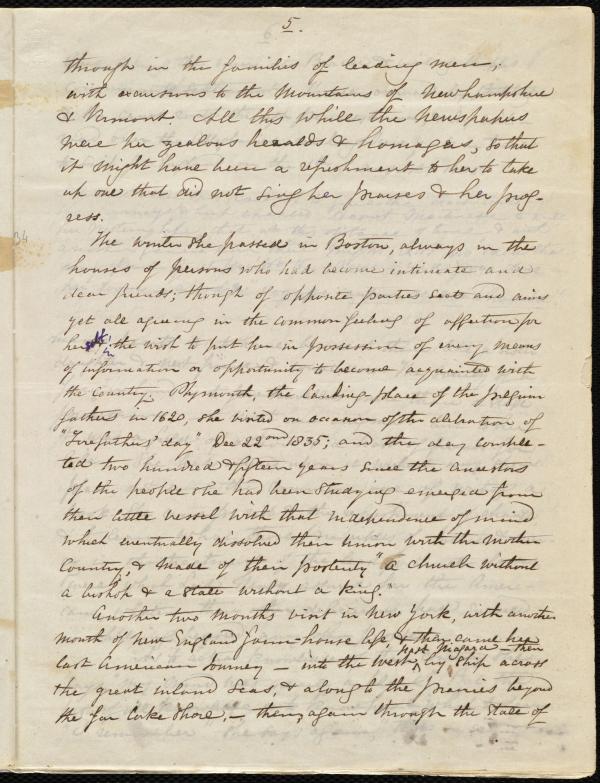 5.
through in the families of leading men,
with excursions to the Mountains of Newhampshire
& Vermont. All this while the Newspapers
were her zealous heralds & homagers, so that
it might have been a refreshment to her to take
up one that did not sing her praises & her prog-
ress.
The winter she passed in Boston, always in the
houses of persons who had become intimate and
dear friends; though of opposite parties sects and aims
yet all agreeing in the common feeling of affection for
her & in the wish to put her in possession of every means
of information or opportunity to become acquainted with
the Country. Plymouth, the landing place of the pilgrim
fathers in 1620, she visited on occasion of the celebration of
"Forefathers' day" Dec 22nd 1835; and the day comple-
ted two hundred & fifteen years since the ancestors
of the people she had been studying emerged from
their little vessel with that independence of mind
which eventually dissolved their union with the Mother
Country, & made of their posterity "a church without
a bishop & a State without a King."
Another two months visit in New York, with another
month of New England farm-house life, & then came her
last American Journey — into the West, by ship across
past Niagara — then
the great inland Seas, & along to the Prairies beyond
the far Lake Shore, — then, again through the State of
34